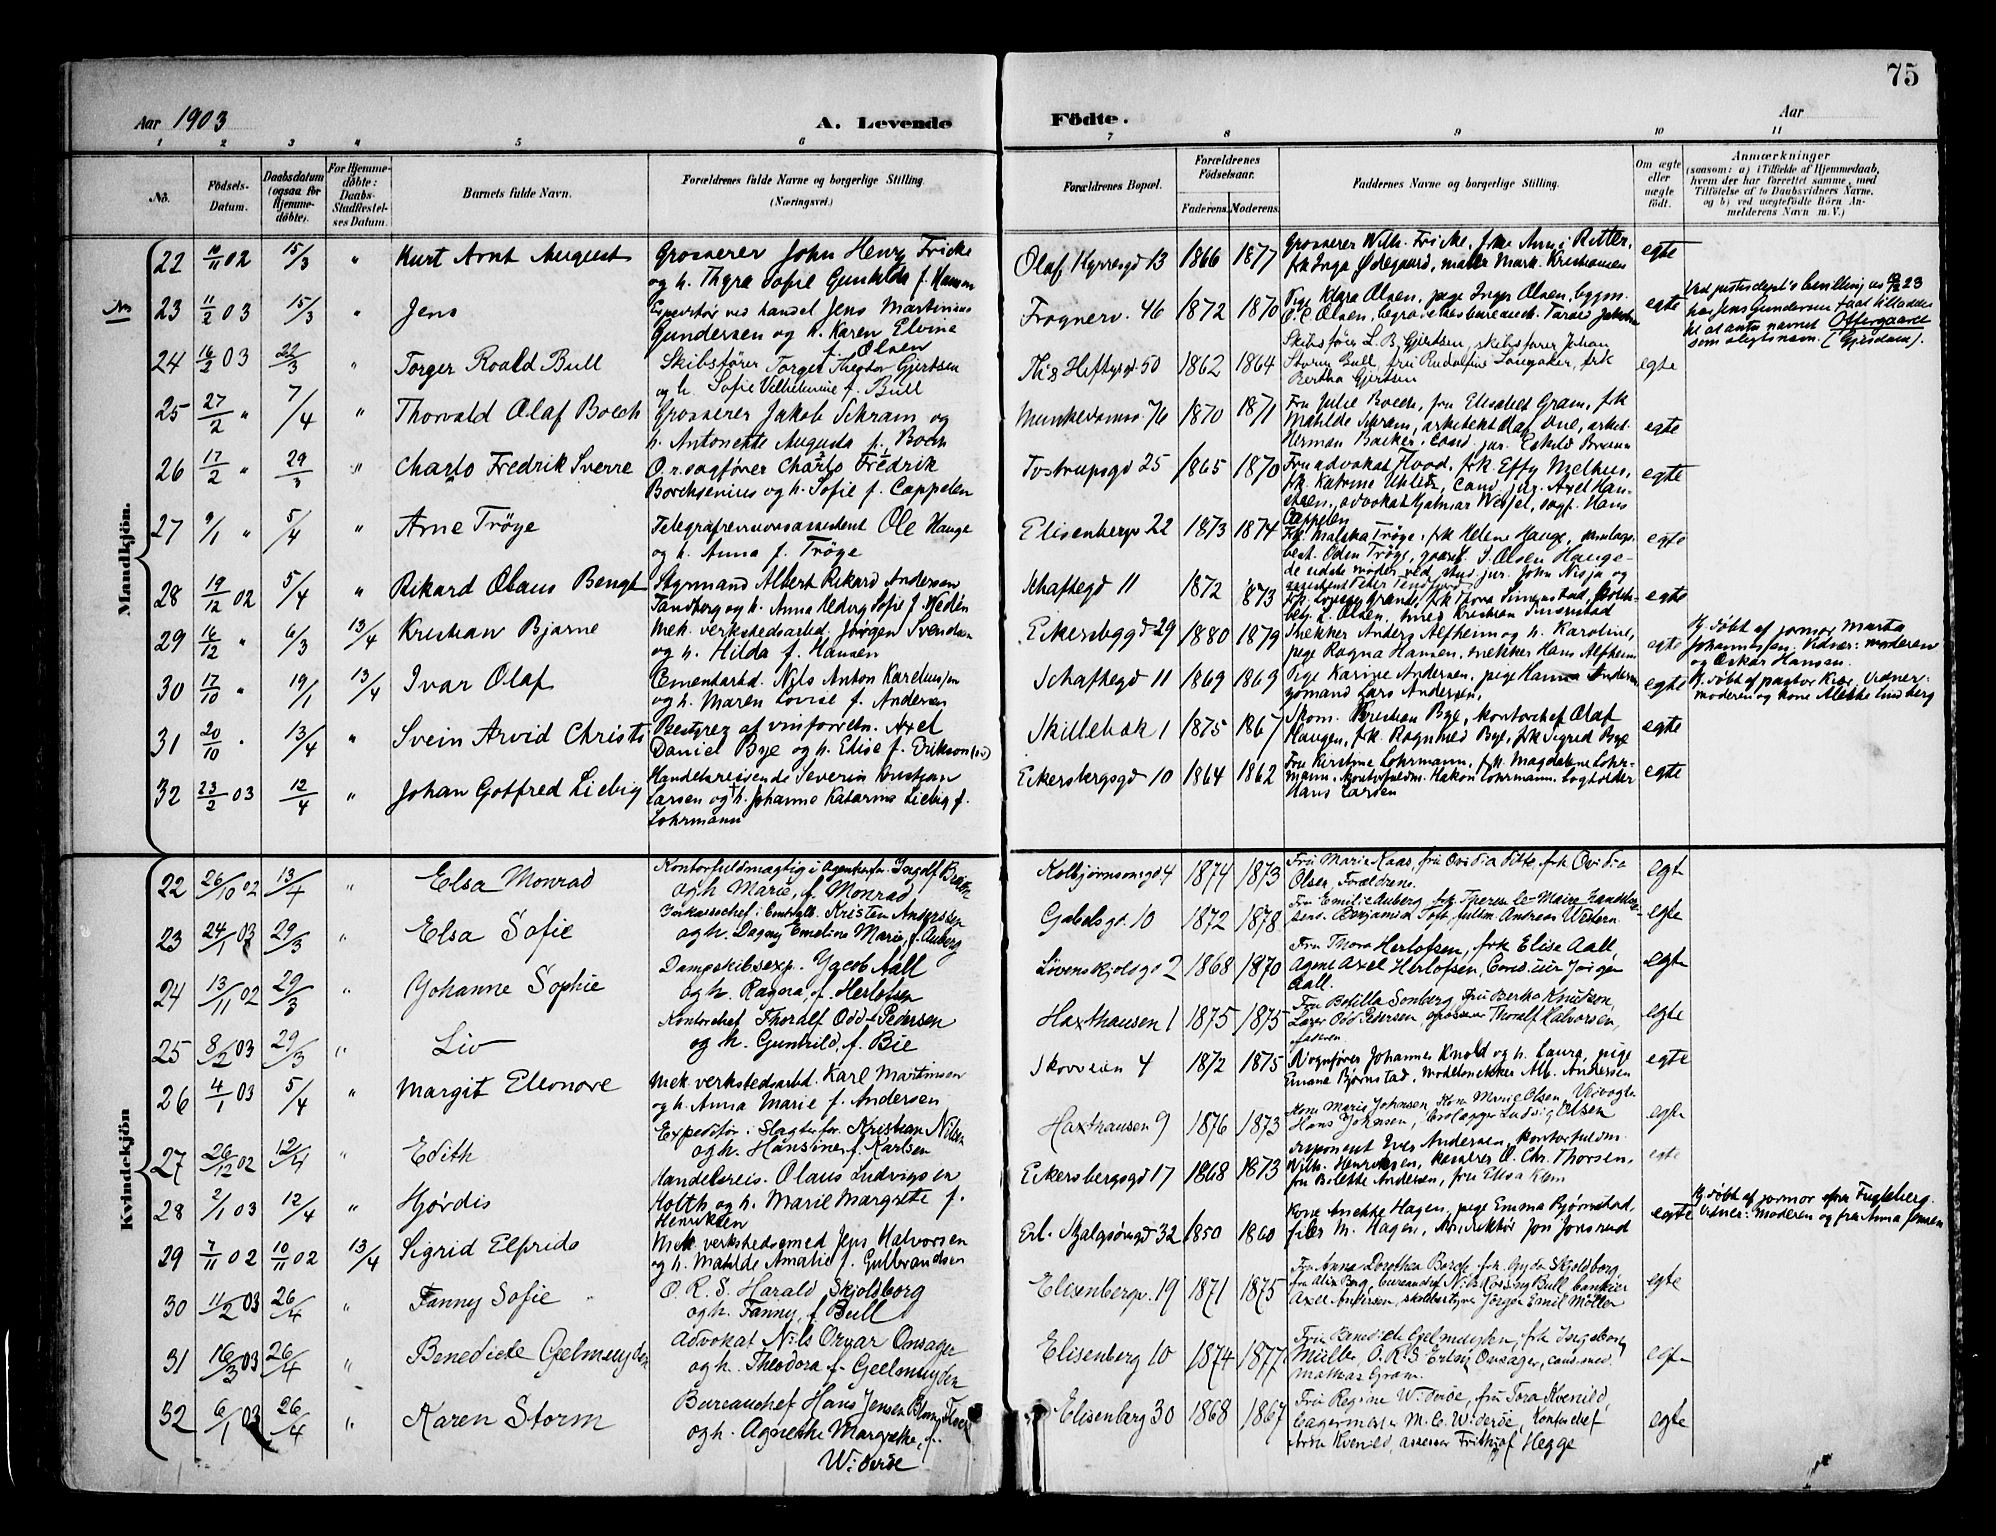 75
Aar 1903
A. Levende
Födte.
Aar
1 2 3 4 5 6 7 8 9 10 11
No.
Födsels-Datum.
Daabsdatum (ogsaa for Hjemmedöbte).
For Hjemmedöbte: Daabs-Stadfæstelses Datum.
Barnets fulde Navn.
Forældrenes fulde Navne og borgerlige Stilling.
(Næringsvei.)
Forældrenes Bopæl.
Forældrenes Födselsaar.
Faderens. Moderens.
Faddernes Navne og borgerlige Stilling.
Om ægte eller uægte födt.
Anmærkninger
(saasom: a) i Tilfælde af Hjemmedaab, hvem der har forrettet samme, med Tilföielse af to Daabsvidners Navne, og b) ved uægtefödte Börn Anmelderens Navn m. V.)
Mandkjön.
22 10/11 02 15/3 " Kurt Arnt August Grosserer John Henry Fricke
og h. Thyra Sofie Gunhilda f. Hansen
Olaf Kyrresgd 13 1866 1877 Grosserer Wilh. Fricke, frk Anni Ritter,
frk Inga Ødegaard, maler Mark. Kristiansen
egte
23 11/2 03 15/3 " Jens Expeditör ved handel Jens Martinius
Gundersen og h. Karen Elvine
f. Olsen
Frognerv. 46 1872 1870 Pige Klara Olsen, pige Inger Olsen, bygm.
O. C. Olsen, begravelsesbureauch.
egte
har Jens Gundersen faat tilladelse
til at anta navnet Oftergaard
som slegtsnavn. (Gjesdam).
24 16/2 03 22/3 " Torger Roald Bull Skibsförer Torger Theodor Gjertsen
og h. Sofie Vilhelmine f. Bull
Ths Heftyesgd 50 1862 1864 Skibsförer L. B. Gjertsen, skibsförer Johan
Bull, fru Rudolfine Langaker, frk
Bertha Gjertsen
egte
25 27/2 " 7/4 " Thorvald Olaf Boech Grosserer Jakob Schram og
h. Antonette Augusta f. Boech
Munkedamsv 76 1870 1871 Fru Julie Boech, fru Elisabet Gram, frk
Mathilde Schram, arkitekt Olaf Due, arkit.
Herman Backer, cand. jur. Eskild Bruun
egte
26 17/2 " 29/3 " Charlo Fredrik Sverre O.r.sagförer Charlo Fredrik
Borchsenius og h. Sofie f. Cappelen
Tostrupsgd 25 1865 1870 Fru advokat Flood, frk. Effy Melhus,
frk Katrine Uhlitz, cand. jur. Axel Hansteen,
advokat Hjalmar Wessel, sagf. Hans
Cappelen
egte
27 9/1 " 5/4 " Arne Tröye Telegrafrevisionsassistent Ole Hauge
og h. Anna f. Tröye
Elisenbergv 22 1873 1874 Frk. Malska Tröye, frk Helene Hauge,
Oden Tröye, gaardt. I. Olsen Hauge
de sidste möder ved stud. jur. John Nisja og
egte
28 19/12 02 5/4 " Rikard Olaus Bengt Styrmand Albert Rikard Andersen
Tandberg og h. Anna Hedvig Sofie f. Wedén
Schaftegd 11 1872 1873 frk Thora Simenstad,
L. Olsen, smed Kristian Simenstad
egte
29 16/12 " 6/3 13/4 Kristian Bjarne Mek. verkstedsarbd. Jörgen Svendsen
og h. Hilda f. Hansen
Eckersbggd 29 1880 1879 Snekker Anders Alfheim og h. Karoline,
pige Ragna Hansen, snekker Hans Alfheim
egte
Hj. döbt af jormor Marta
Johannessen. Vidner: moderen
og Oskar Hansen.
30 17/10 " 19/1 13/4 Ivar Olaf Cementarbd. Nils Anton Kareliussen
og h. Maren Lovise f. Andersen
Schaftegd 11 1869 1869 Pige Karine Andersen, pige Hanna Andersen
Lars Andersen,
egte
Hj. döbt af pastor Krag. Vidner:
moderen og kone Alette Lindberg
31 20/10 " 13/4 " Svein Arvid Christo Bestyrer af vinforretn. Axel
Daniel Bye og h. Elise f. Erikson
Skillebæk 1 1875 1867 Skom. Kristian Bye, kontorchef Olaf
Haugen, frk. Ragnhild Bye, frk Sigrid Bye
egte
32 23/2 03 12/4 " Johan Gotfred Liebig Handelsreisende Severin Kristian
Larsen og h. Johanne Katarina Liebig f.
Lohrmann
Eckersbergsgd 10 1864 1862 Fru Kirstine Lohrmann, frk. Magdalene Lohrmann,
kontorfuldm. Hakon Lohrmann, bogholder
Hans Larsen
egte
Kvindekjön
22 26/10 02 13/4 " Elsa Monrad Kontorfuldmægtig i Agenturfor. Ingolf
og h. Marie, f. Monrad
Kolbjørnsensgd 4 1874 1873 Fru Marie Kaas, fru Ovidia Ditte, frk Ovidia
Olsen, Forældrene.
egte
23 24/1 03 29/3 " Elsa Sofie Inkassochef i Centralb. Kristen Anderssen
og h. Dagny Emeline Marie, f. Auberg
Gabelsgd. 10 1872 1878 Fru Emilie Auberg, frk Therese le Maire,
Benjamin Toft, fuldm. Andreas Western
egte
24 13/11 02 29/3 " Johanne Sophie Dampskibsexp. Jacob Aall
og h. Ragna, f. Herlofsen
Lövenskjoldsgd 2 1868 1870 Fru Thora Herlofsen, frk Elise Aall,
Agent Axel Herlofsen, Cand. jur Jörgen
Aall.
egte
25 8/2 03 29/3 " Liv Kontorchef Thoralf Odd Pedersen
og h. Gunhild, f. Bie
Haxthausen 1 1875 1875 Fru Botilla Sonberg, Fru Bertha Knudsen,
Læge Odd Pedersen, grosserer Thoralf Halvorsen,
faderen.
egte
26 4/1 03 5/4 " Margit Eleonore Mek. verkstedsarbd. Karl Martinsen
og h. Anna Marie f. Andersen
Skovveien 4 1872 1875 Vognförer Johannes Knold og h. Laura, pige
Emma Björnstad, modelsnekker Alb. Andersen
egte
27 26/12 02 12/4 " Edith Expeditör i Slagterfor. Kristian Nilsen
og h. Hansine f. Karlsen
Haxthausen 9 1876 1873 Kone Marie Johnsen, Kone Marie Olsen,
Hans Johnsen, Ludvig Olsen
egte
28 2/1 03 12/4 " Hjördis Handelsreis. Olaus Ludvigsen
Holth og h. Marie Margrete f.
Henriksen
Eckersbergsgd 17 1868 1873 Disponent Iver Andersen, kontorfuldm.
Wilh. Henriksen, kasserer O. Chr. Thorsen,
fru Bolette Andersen, fru Elisa Klem
egte
29 7/11 02 10/11 02 13/4 Sigrid Elfrida Mek. verkstedsmed Jens Halvorsen
og h. Matilde Amalie f. Gulbrandsen
Erl. Skjalgsönsgd 32 1850 1860 Kone Anette Hagen, pige Emma Björnstad,
filer M. Hagen, Jon Jonsrud
egte
Hj. döbt af jormor fru Fugleberg.
Vidner: Moderen og fru Anna Jensen
30 11/2 03 26/4 " Fanny Sofie O. R. S. Harald Skjoldborg
og h. Fanny, f. Bull
Elisenbergv. 19 1871 1875 Fru Anna Dorothea Borch, frk. Gyda Skjoldborg,
fru Alix Borg, bureauchef Nils Rosing Bull, bankier
Axel Andersen, skolebestyrer Jörgen Emil Möller
egte
31 16/3 03 26/4 " Benedicte Geelmuyden Advokat Nils Orvar Onsager
og h. Theodora f. Geelmuyden
Elisenberg 10 1874 1877 Fru Benedicte Geelmuyden, frk Ingeborg
Müller, O.R.S Erling Onsager, cand. med.
Mathias Gram.
egte
32 6/1 03 26/4 " Karen Storm Bureauchef Hans Jensen
og h. Agnethe Margrethe, f.
Wideröe
Elisenberg 30 1868 1867 Fru Regine Wideröe, fru Tora Kvenild,
Lagermester M. C. Wideröe, Kontorchef
Kvenild, assessor Frithjof Hegge
egte